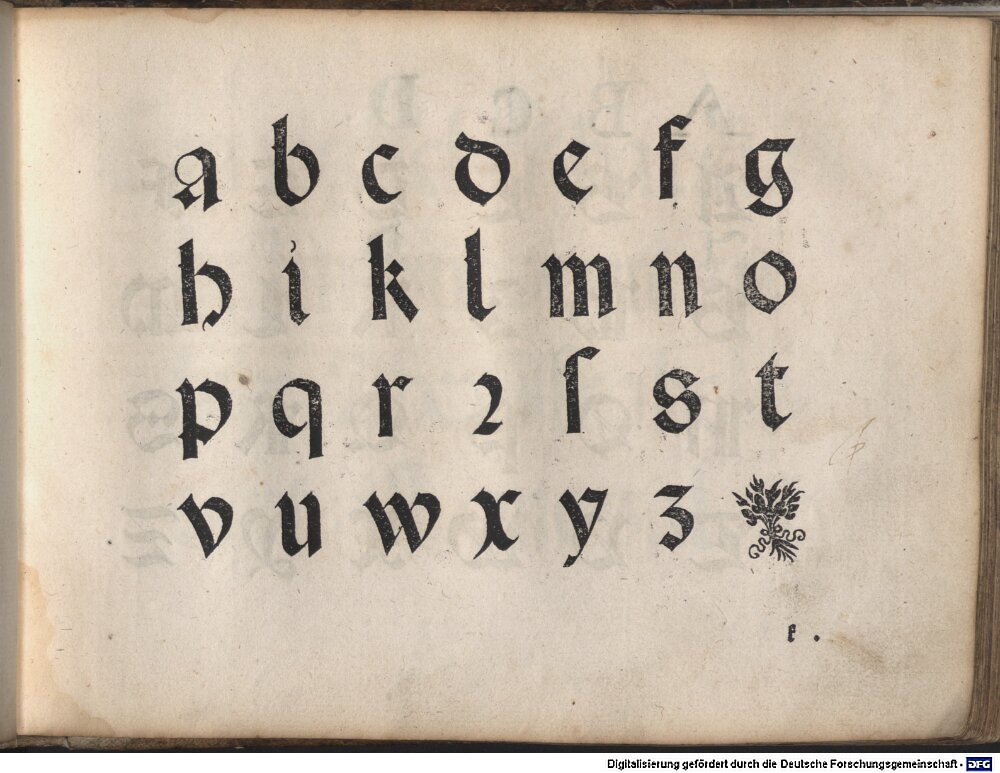 a b c d e f g
h i k l m n o
p q r ꝛ ſ s t
v u w x y z
k .
Digitalisierung gefördert durch die Deutsche Forschungsgemeinschaft - DFG